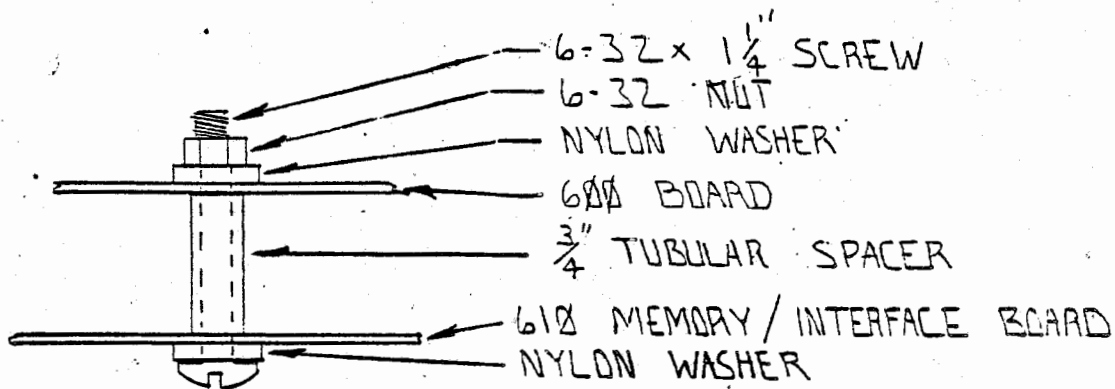 6-32 x 1 1/4" SCREW
6-32 NUT
NYLON WASHER
6ØØ BOARD
3/4" TUBULAR SPACER
61Ø MEMORY / INTERFACE BOARD
NYLON WASHER